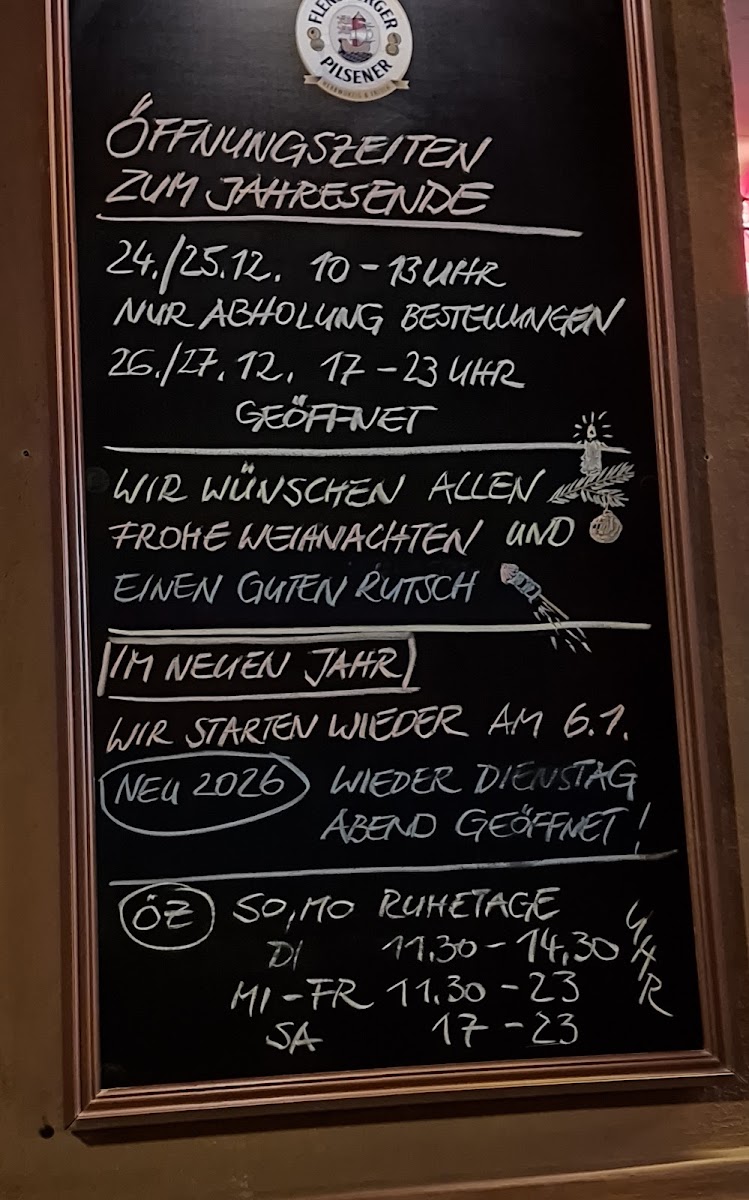 FLENSBURGER
PILSENER
ÖFFNUNGSZEITEN
ZUM JAHRESENDE
24./25.12. 10-13 UHR
NUR ABHOLUNG BESTELLUNGEN
26./27.12. 17-23 UHR
GEÖFFNET
WIR WÜNSCHEN ALLEN
FROHE WEIHNACHTEN UND
EINEN GUTEN RUTSCH
IM NEUEN JAHR
WIR STARTEN WIEDER AM 6.1.
NEU 2026 WIEDER DIENSTAG
ABEND GEÖFFNET!
ÖZ SO, MO RUHETAGE
DI 11.30-14.30 UHR
MI-FR 11.30-23
SA 17-23